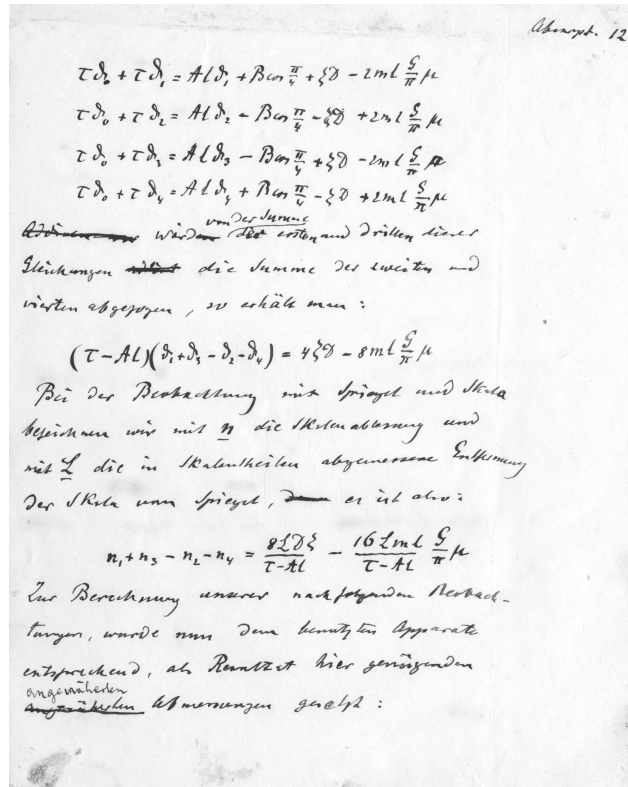 Abscept. 12
τϑ₀ + τϑ₁ = Alϑ₁ + B cos π/4 + ξD − 2ml ϛ/π μ
τϑ₀ + τϑ₂ = Alϑ₂ − B cos π/4 − ξD + 2ml ϛ/π μ
τϑ₀ + τϑ₃ = Alϑ₃ − B cos π/4 + ξD − 2ml ϛ/π μ
τϑ₀ + τϑ₄ = Alϑ₄ + B cos π/4 − ξD + 2ml ϛ/π μ
von der Summe
würden der ersten und dritten dieser
Gleichungen die Summe der zweiten und
vierten abgezogen, so erhält man:
(τ − Al)(ϑ₁ + ϑ₃ − ϑ₂ − ϑ₄) = 4ξD − 8ml ϛ/π μ
Bei der Beobachtung mit Spiegel und Skala
bezeichnen wir mit n die Skalenablesung und
mit L die in Skalentheilen abgemessene Entfernung
der Skala vom Spiegel, es ist also:
n₁ + n₃ − n₂ − n₄ = 8LDξ/τ−Al − 16Lml/τ−Al ϛ/π μ
Zur Berechnung unserer nachfolgenden Beobach-
tungen, wurde nun dem benutzten Apparate
entsprechend, als Resultat hier genügenden
angenäherten
angenäherten Abmessungen gesetzt: